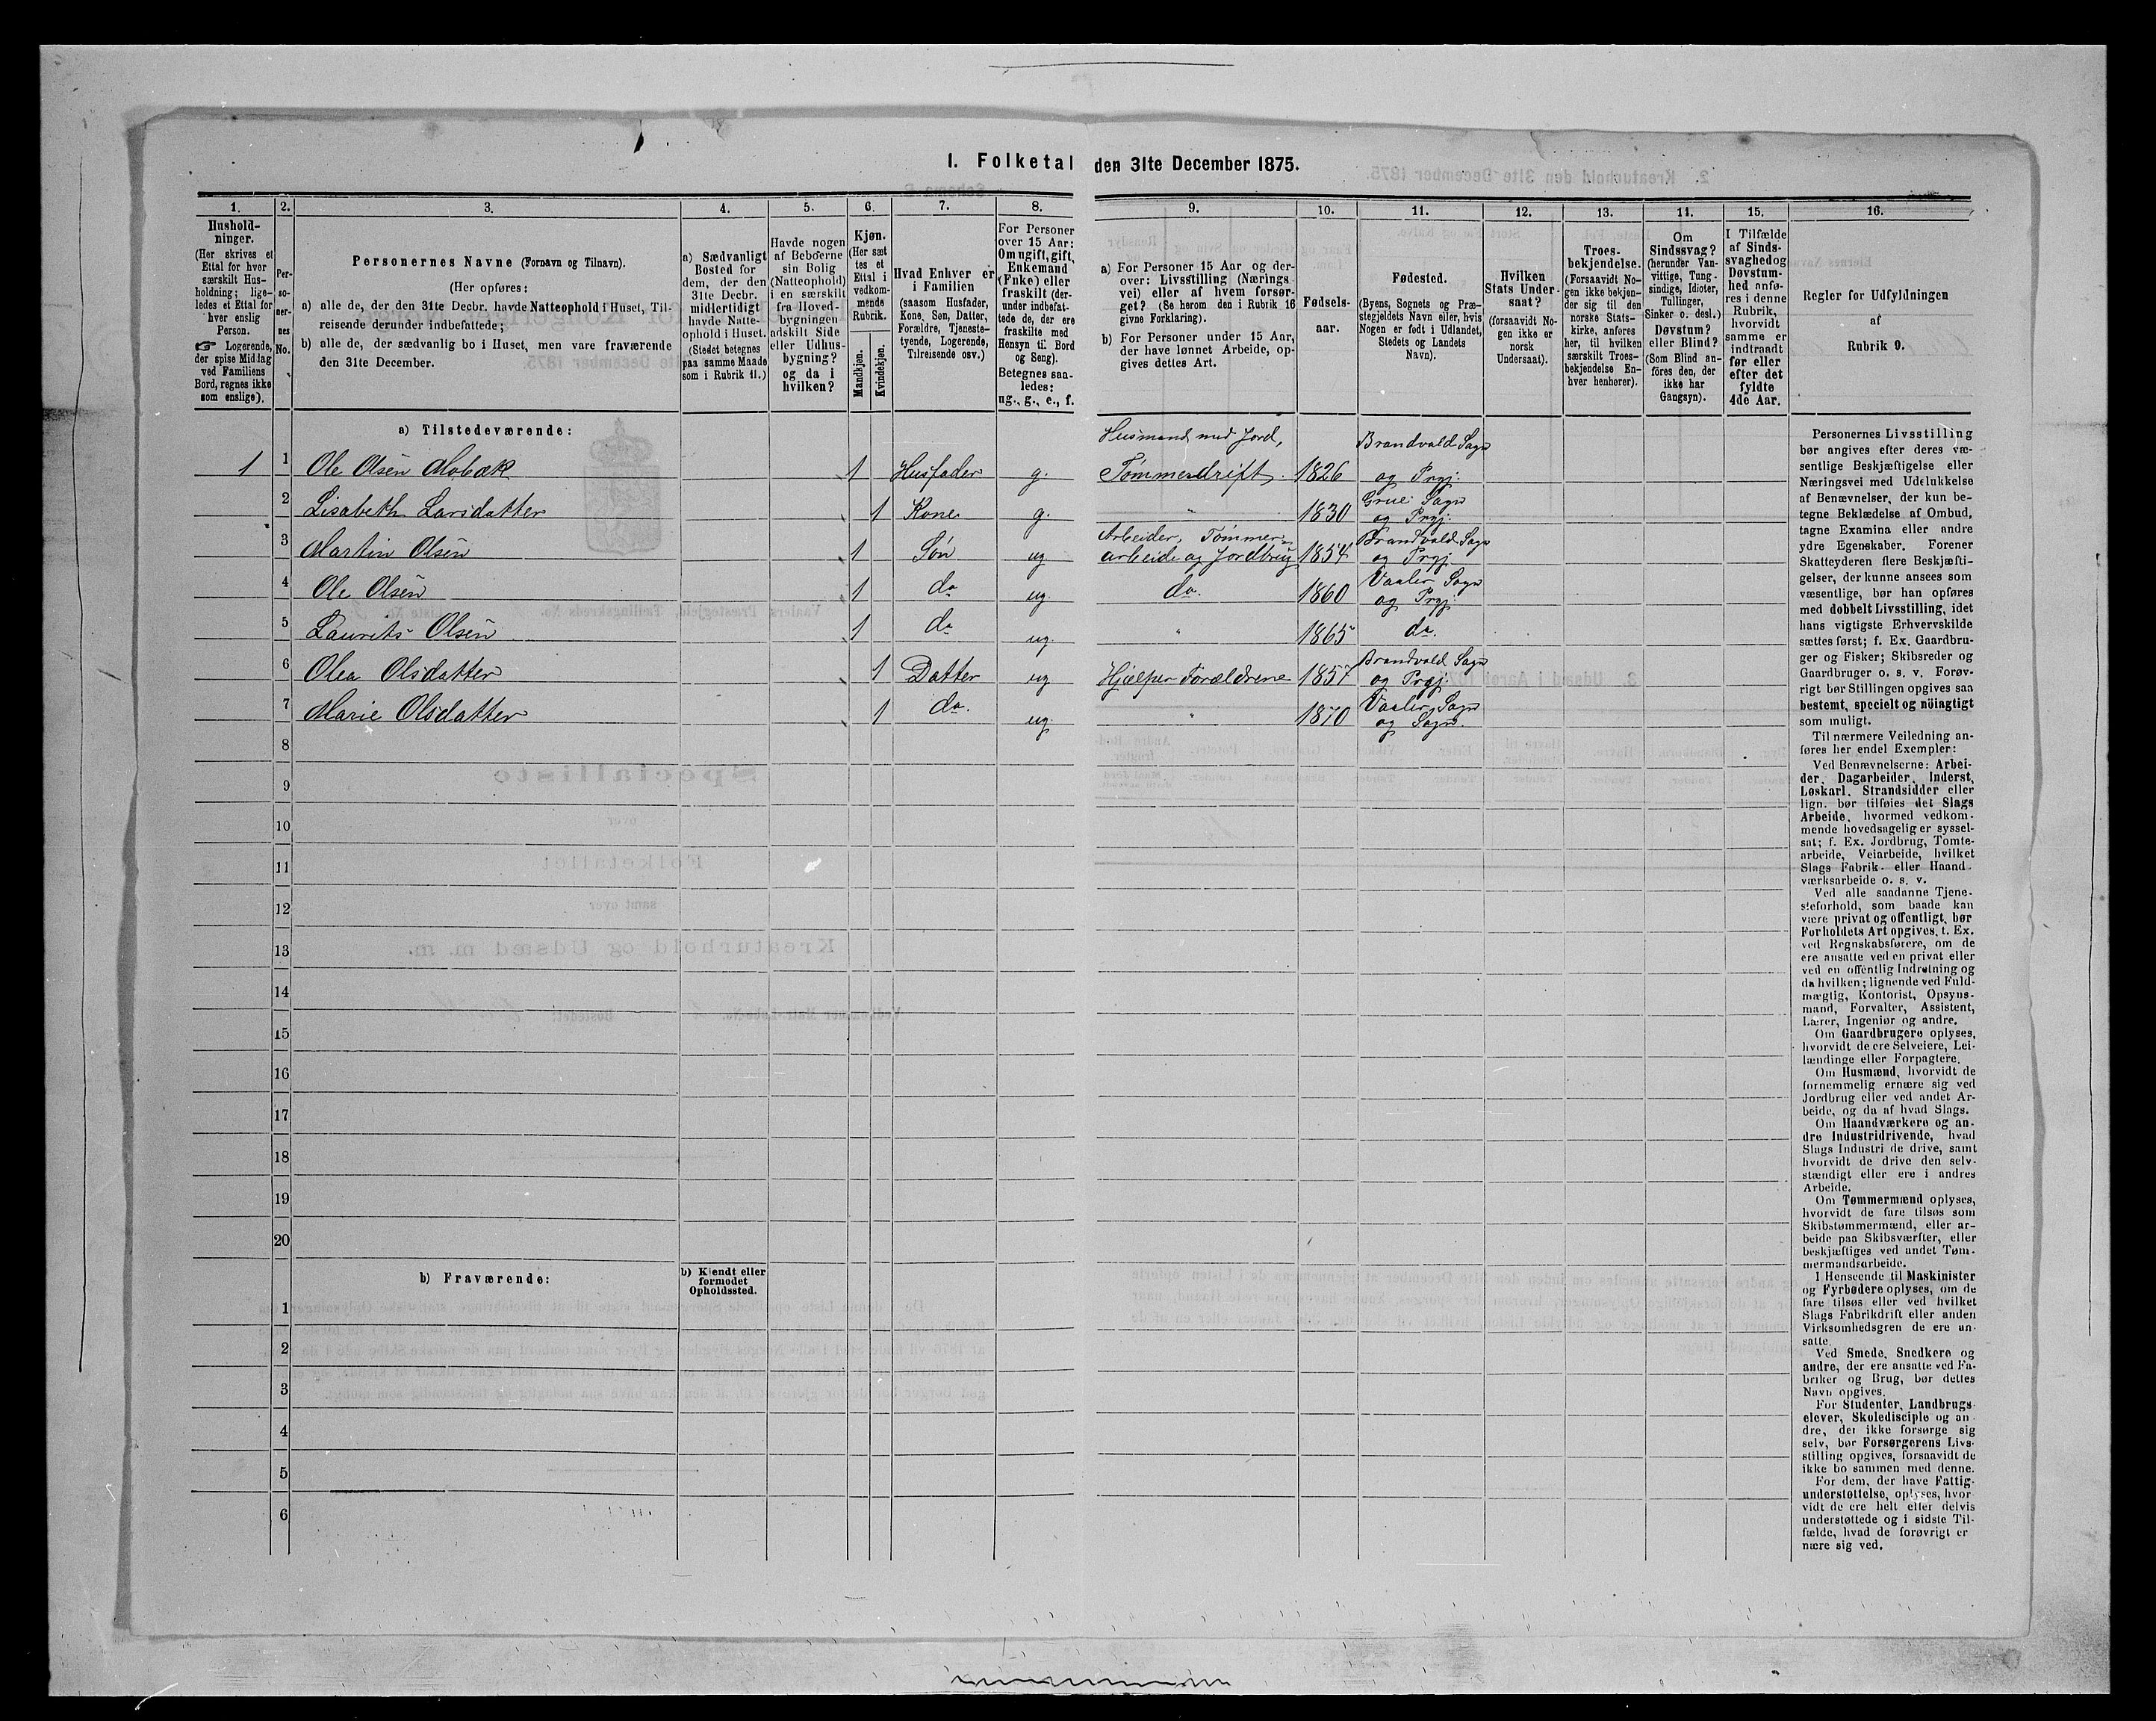 I. Folketal den 31te December 1875.
1.
Hushold-
ninger.
(Her skrives et
Ettal for hver
særskilt Hus-
holdning; lige-
ledes et Ettal for
hver enslig
Person.
☞ Logerende,
der spise Middag
ved Familiens
Bord, regnes ikke
som enslige).
2.
Per-
so-
ner-
nes
No.
3.
Personernes Navne (Fornavn og Tilnavn).
(Her opføres:
a) alle de, der den 31te Decbr. havde Natteophold i Huset, Til-
reisende derunder indbefattede;
b) alle de, der sædvanlig bo i Huset, men vare fraværende
den 31te December.
4.
a) Sædvanligt
Bosted for
dem, der den
31te Decbr.
midlertidigt
havde Natte-
ophold i Huset.
(Stedet betegnes
paa samme Maade
som i Rubrik 11.)
5.
Havde nogen
af Beboerne
sin Bolig
(Natteophold)
i en særskilt
fra Hoved-
bygningen
adskilt Side
eller Udhus-
bygning?
og da i
hvilken?
6.
Kjøn.
(Her sæt
tes et
Ettal i
vedkom-
mende
Rubrik.
Mandkjøn.
Kvindekjøn.
7.
Hvad Enhver er
i Familien
(saasom Husfader,
Kone, Søn, Datter,
Forældre, Tjeneste-
tyende, Logerende,
Tilreisende osv.)
8.
For Personer
over 15 Aar:
Om ugift, gift,
Enkemand
(Enke) eller
fraskilt (der-
under indbefat-
tede de, der ere
fraskilte med
Hensyn til Bord
og Seng).
Betegnes saa-
ledes:
ug., g., e., f.
9.
a) For Personer 15 Aar og der-
over: Livsstilling (Nærings
vei) eller af hvem forsør-
get? (Se herom den i Rubrik 16
givne Forklaring).
b) For Personer under 15 Aar,
der have lønnet Arbeide, op-
gives dettes Art.
10.
Fødsels-
aar.
11.
Fødested.
(Byens, Sognets og Præ-
stegjeldets Navn eller, hvis
Nogen er født i Udlandet,
Stedets og Landets
Navn).
12.
Hvilken
Stats Under-
saat?
(forsaavidt No-
gen ikke er
norsk
Undersaat).
13.
Troes-
bekjendelse.
(Forsaavidt No-
gen ikke bekjen-
der sig til den
norske Stats-
kirke, anføres
her, til hvilken
særskilt Troes-
bekjendelse En-
hver henhører).
14.
Om
Sindssvag?
(herunder Van-
vittige, Tung-
sindige, Idioter,
Tullinger,
Sinker o. desl.)
Døvstum?
eller Blind?
(Som Blind an-
føres den, der
ikke har
Gangsyn).
15.
I Tilfælde
af Sinds-
svaghed og
Døvstum-
hed anfø-
res i denne
Rubrik,
hvorvidt
samme er
indtraadt
før eller
efter det
fyldte
4de Aar.
16.
Regler for Udfyldningen
af
Rubrik 9.
a) Tilstedeværende:
1 1 Ole Olsen Mobæk 1 Husfader g. Husmand med Jord, Tømmerdrift. 1826 Brandvold Sogn og Prgj.
2 Lisabeth Larsdatter 1 Kone g. " 1830 Grue Sogn og Prgj.
3 Martin Olsen 1 Søn ug Arbeider, Tømmer- arbeide og Jordbrug 1854 Brandvold Sogn og Prgj.
4 Ole Olsen 1 do ug. do. 1860 Vaaler Sogn og Prgj.
5 Laurits Olsen 1 do ug. " 1865 do.
6 Olea Olsdatter 1 Datter ug Hjælper Forældrene 1857 Brandvold Sogn og Prgj.
7 Marie Olsdatter 1 do. ug. " 1870 Vaaler Sogn og Sogn.
8
9
10
11
12
13
14
15
16
17
18
19
20
b) Fraværende:
b) Kjendt eller
formodet
Opholdssted.
1
2
3
4
5
6
Personernes Livsstilling
bør angives efter deres væ-
sentlige Beskjæftigelse eller
Næringsvei med Udelukkelse
af Benævnelser, der kun be-
tegne Beklædelse af Ombud,
tagne Examina eller andre
ydre Egenskaber. Forener
Skatteyderen flere Beskjæfti-
gelser, der kunne ansees som
væsentlige, bør han opføres
med dobbelt Livsstilling, idet
hans vigtigste Erhvervskilde
sættes først; f. Ex. Gaardbru-
ger og Fisker; Skibsreder og
Gaardbruger o. s. v. Forøv-
rigt bør Stillingen opgives saa
bestemt, specielt og nöiagtigt
som muligt.
Til nærmere Veiledning an-
føres her endel Exempler:
Ved Benævnelserne: Arbei-
der, Dagarbeider, Inderst,
Løskarl, Strandsidder eller
lign. bør tilføies det Slags
Arbeide, hvormed vedkom-
mende hovedsagelig er syssel-
sat; f. Ex. Jordbrug, Tomte-
arbeide, Veiarbeide, hvilket
Slags Fabrik- eller Haand-
værksarbeide o. s. v.
Ved alle saadanne Tjene-
steforhold, som baade kan
være privat og offentligt, bør
Forholdets Art opgives, t. Ex.
ved Regnskabsførere, om de
ere ansatte ved en privat eller
ved en offentlig Indretning og
da hvilken; lignende ved Fuld-
mægtig, Kontorist, Opsyns-
mand, Forvalter, Assistent,
Lærer, Ingeniør og andre.
Om Gaardbrugere oplyses,
hvorvidt de ere Selveiere, Lei-
lændinge eller Forpagtere.
Om Husmænd, hvorvidt de
fornemmelig ernære sig ved
Jordbrug eller ved andet Ar-
beide, og da af hvad Slags.
Om Haandværkere og an-
dre Industridrivende, hvad
Slags Industri de drive, samt
hvorvidt de drive den selv-
stændigt eller ere i andres
Arbeide.
Om Tømmermænd oplyses,
hvorvidt de fare tilsøs som
Skibstømmermænd, eller ar-
beide paa Skibsværfter, eller
beskjæftiges ved andet Tøm-
mermandsarbeide.
I Henseende til Maskinister
og Fyrbødere oplyses, om de
fare tilsøs eller ved hvilket
Slags Fabrikdrift eller anden
Virksomhedsgren de ere an-
satte.
Ved Smede, Snedkere og
andre, der ere ansatte ved Fa-
briker og Brug, bør dettes
Navn opgives.
For Studenter, Landbrugs-
elever, Skoledisciple og an-
dre, der ikke forsørge sig
selv, bør Forsørgerens Livs-
stilling opgives, forsaavidt de
ikke bo sammen med denne.
For dem, der have Fattig-
understøttelse, oplyses, hvor-
vidt de ere helt eller delvis
understøttede og i sidste Til-
fælde, hvad de forøvrigt er
nære sig ved.